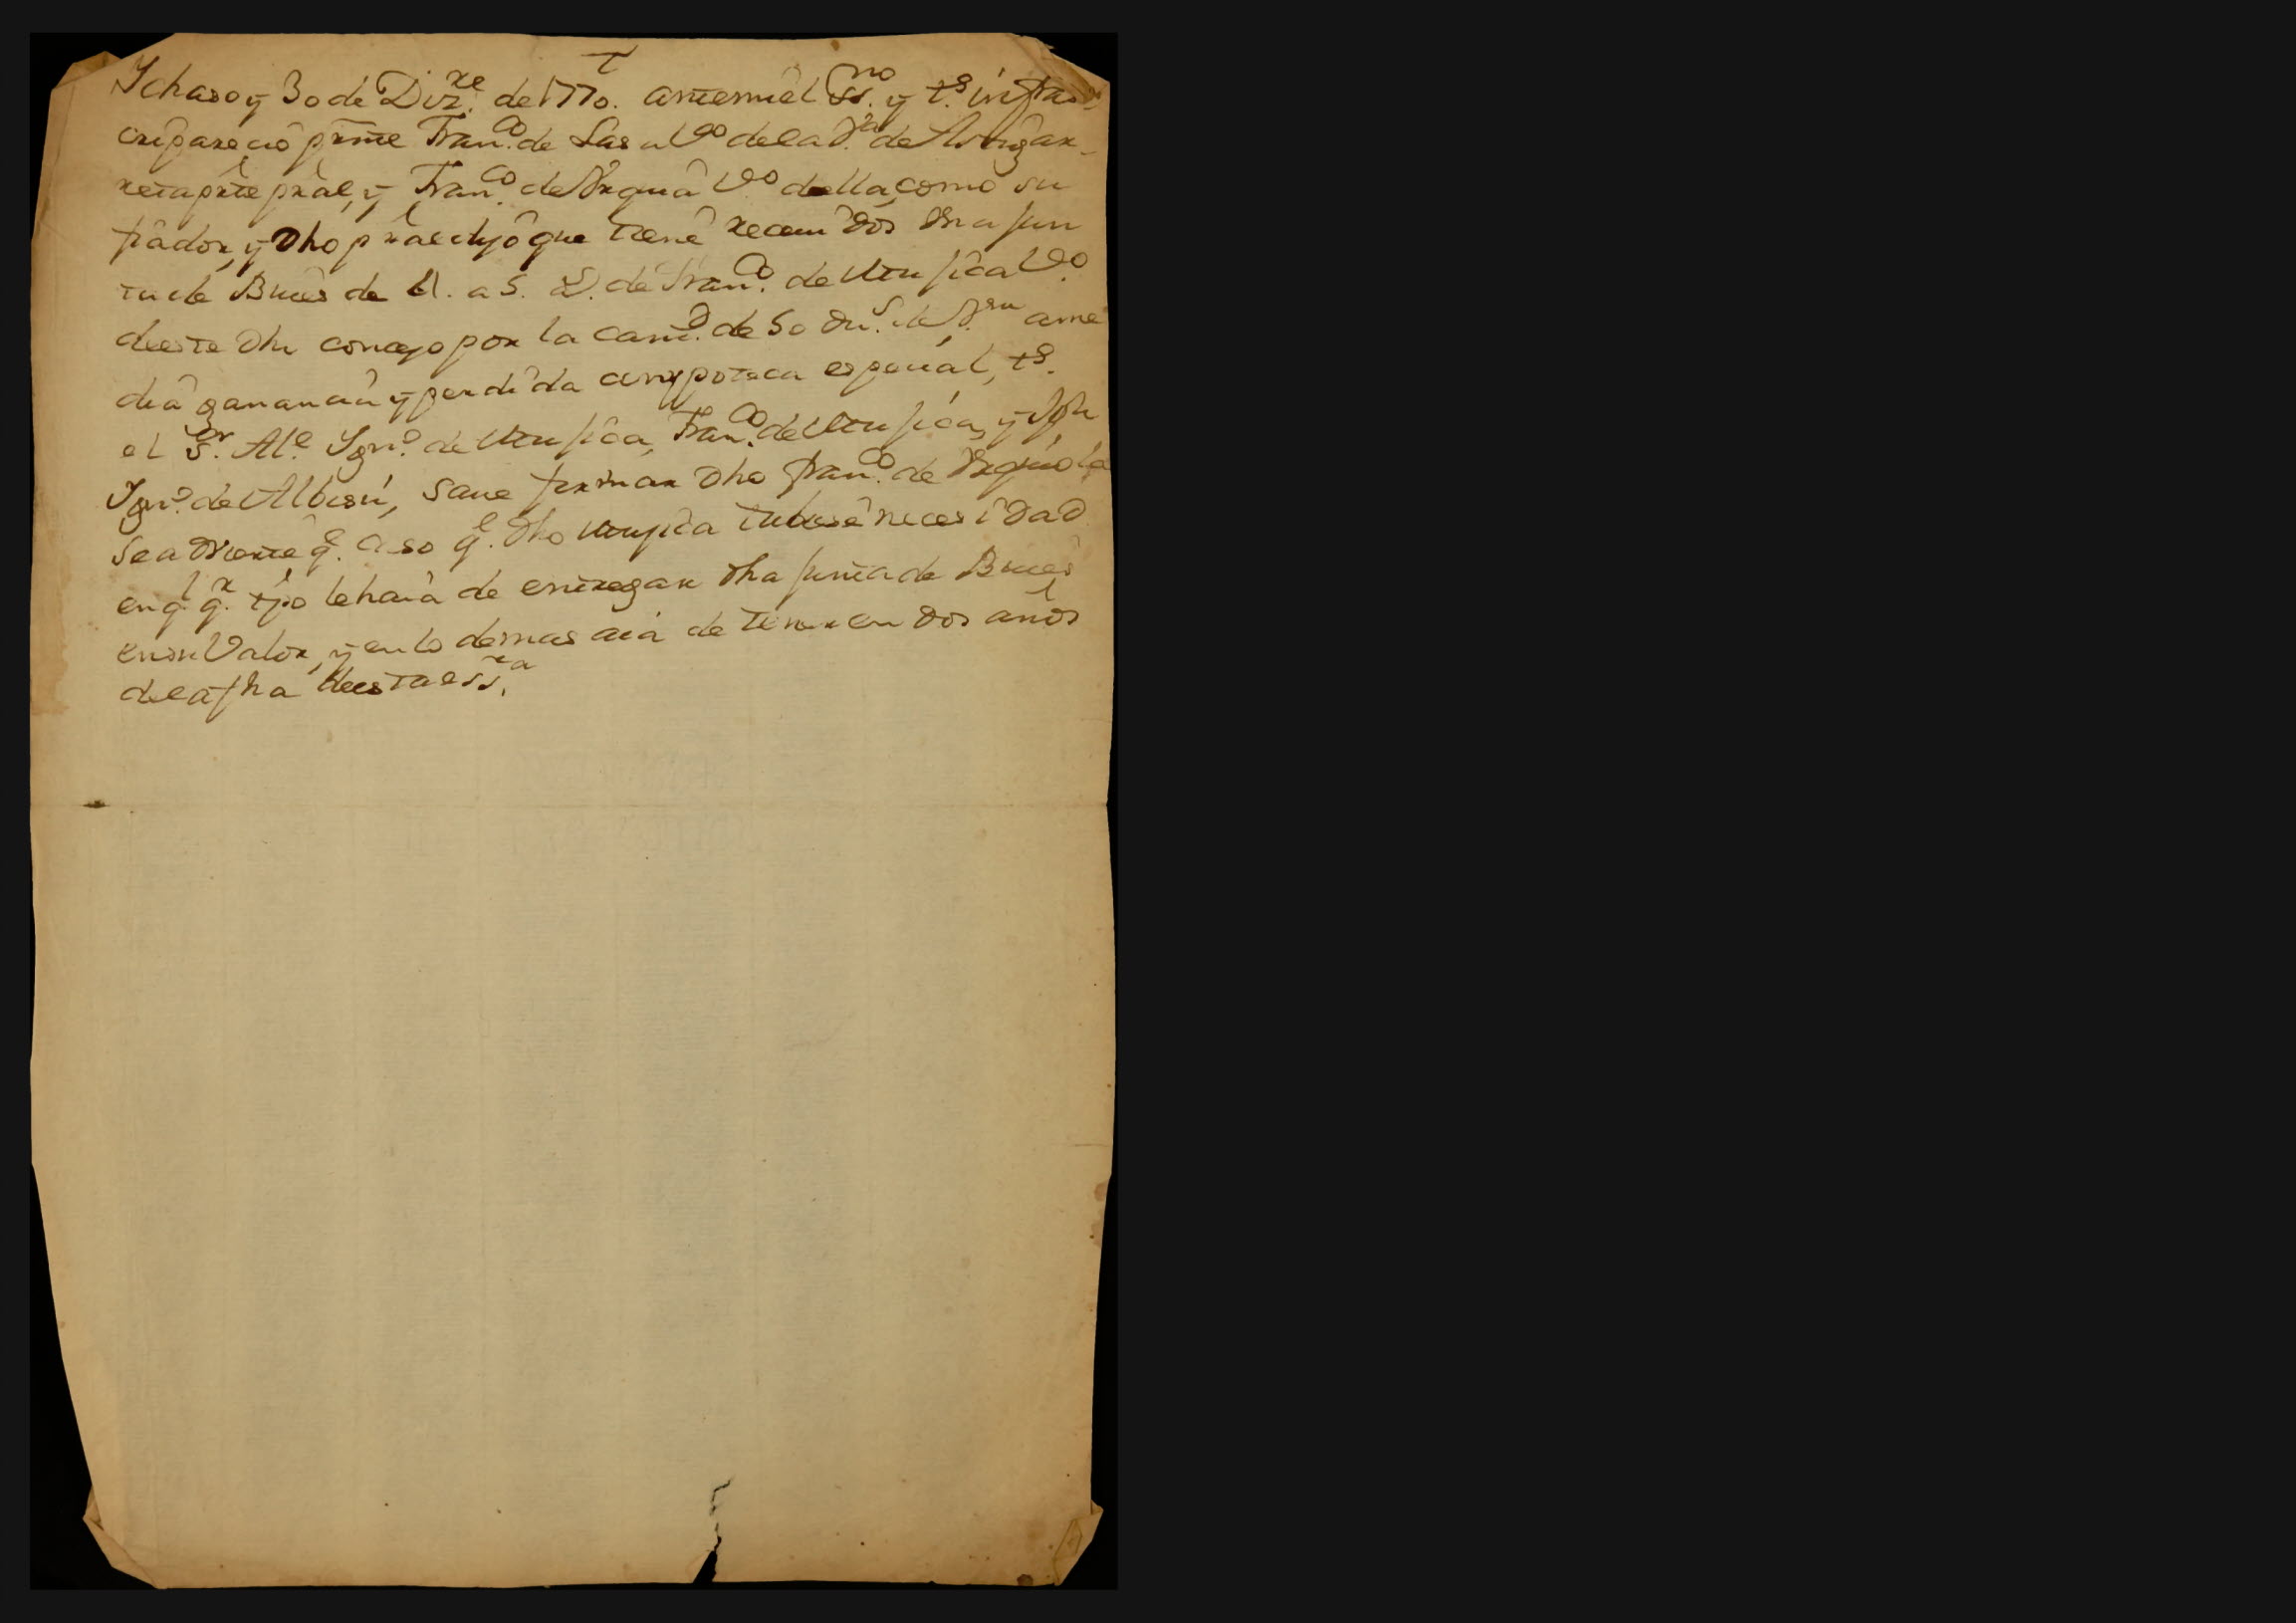 Ichaso y 30 de Diz.re de 1770. antemi el ss.no y t.s infras
cri parecio prnte Fran.co de Lasa Vo de la V.a de Astigar-
reta prte pral, y Fran.co de Urquia Vo della, como su
fiador, y dho pral dijo que tiene recevidos una jun
ta de Bueies de de Fran.co de Utusica Vo
deeste dho concejo por la cant.d de 50 du.s de V.on a me
dia ganancia y perdida con ypoteca especial, t.s
el S.or Al.e Ign.o de Utusica, Fran.co de Utusica, y Jph
Ign.o de Albisu, save firmar dho Fran.co de Urquiola
se advierte q.e caso q.e dho utusica tubiese necesidad
en q.l q.r tpo le haia de entregar dha junta de Bueies
en su Valor, y en lo demas aia de tener en dos años
de la fha deesta ess.ra